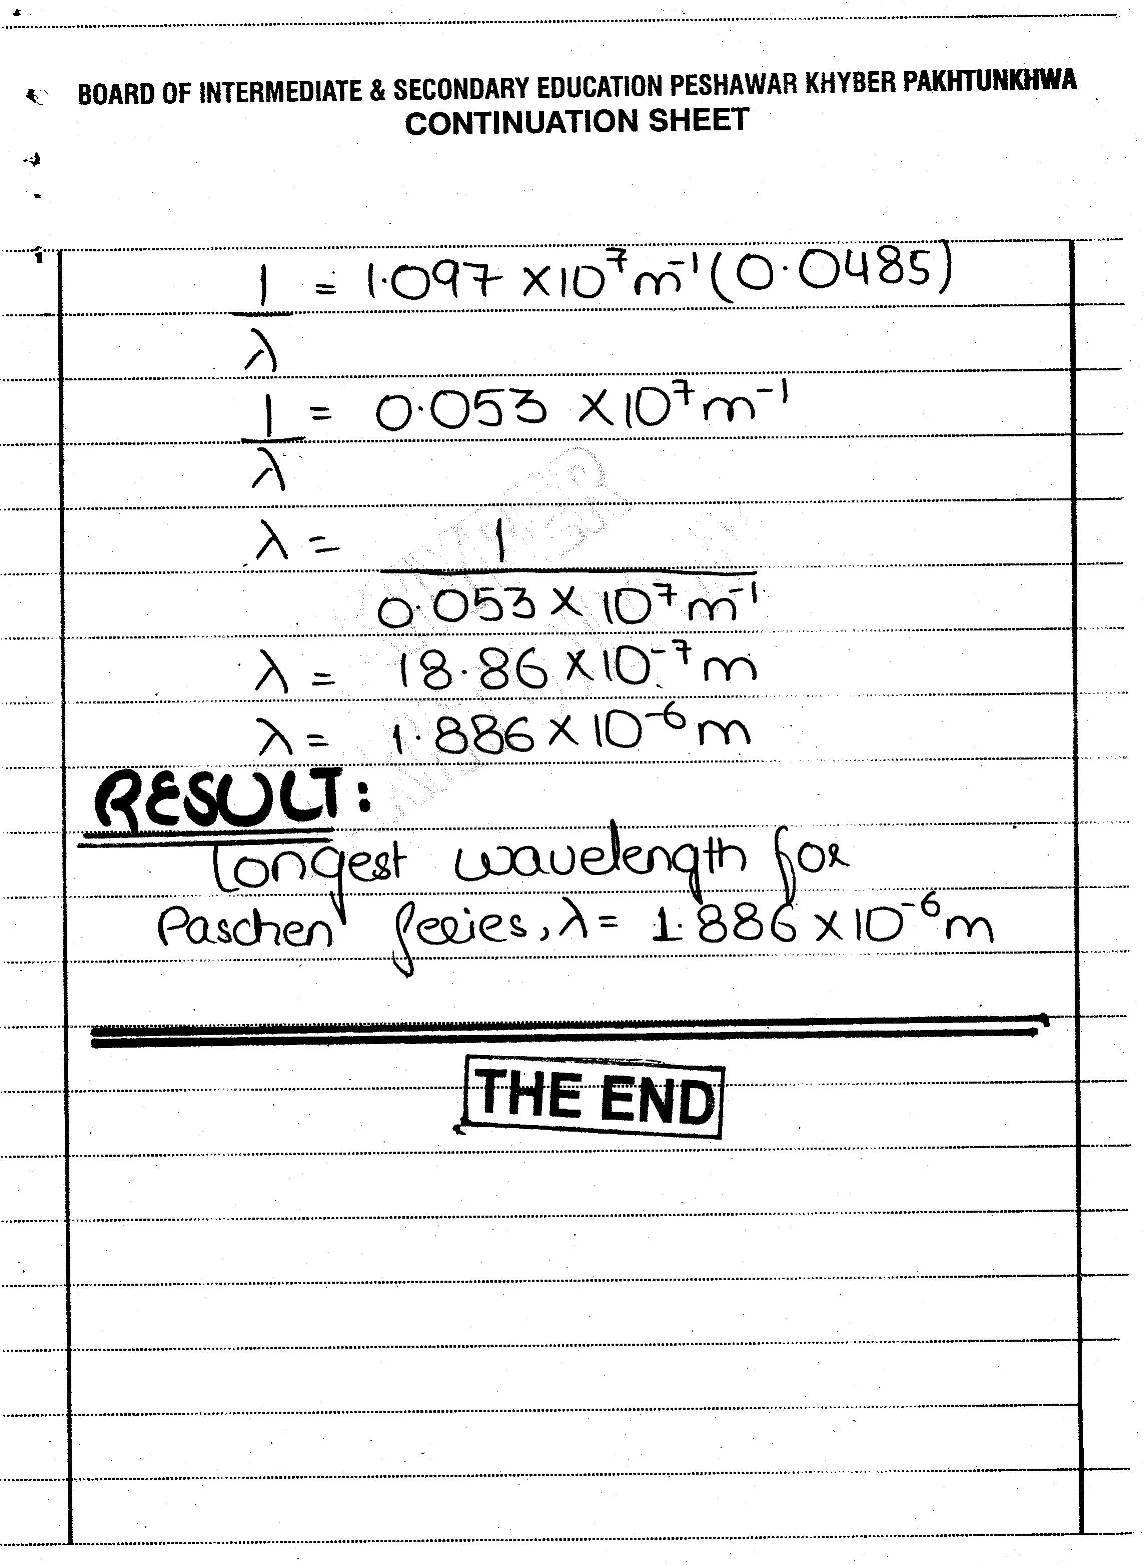 BOARD OF INTERMEDIATE & SECONDARY EDUCATION PESHAWAR KHYBER PAKHTUNKHWA
CONTINUATION SHEET
1/λ = 1.097 × 10⁷ m⁻¹ (0.0485)
1/λ = 0.053 × 10⁷ m⁻¹
λ = 1/(0.053 × 10⁷ m⁻¹)
λ = 18.86 × 10⁻⁷ m
λ = 1.886 × 10⁻⁶ m
RESULT:
Longest wavelength for
Paschen series, λ = 1.886 × 10⁻⁶ m
THE END